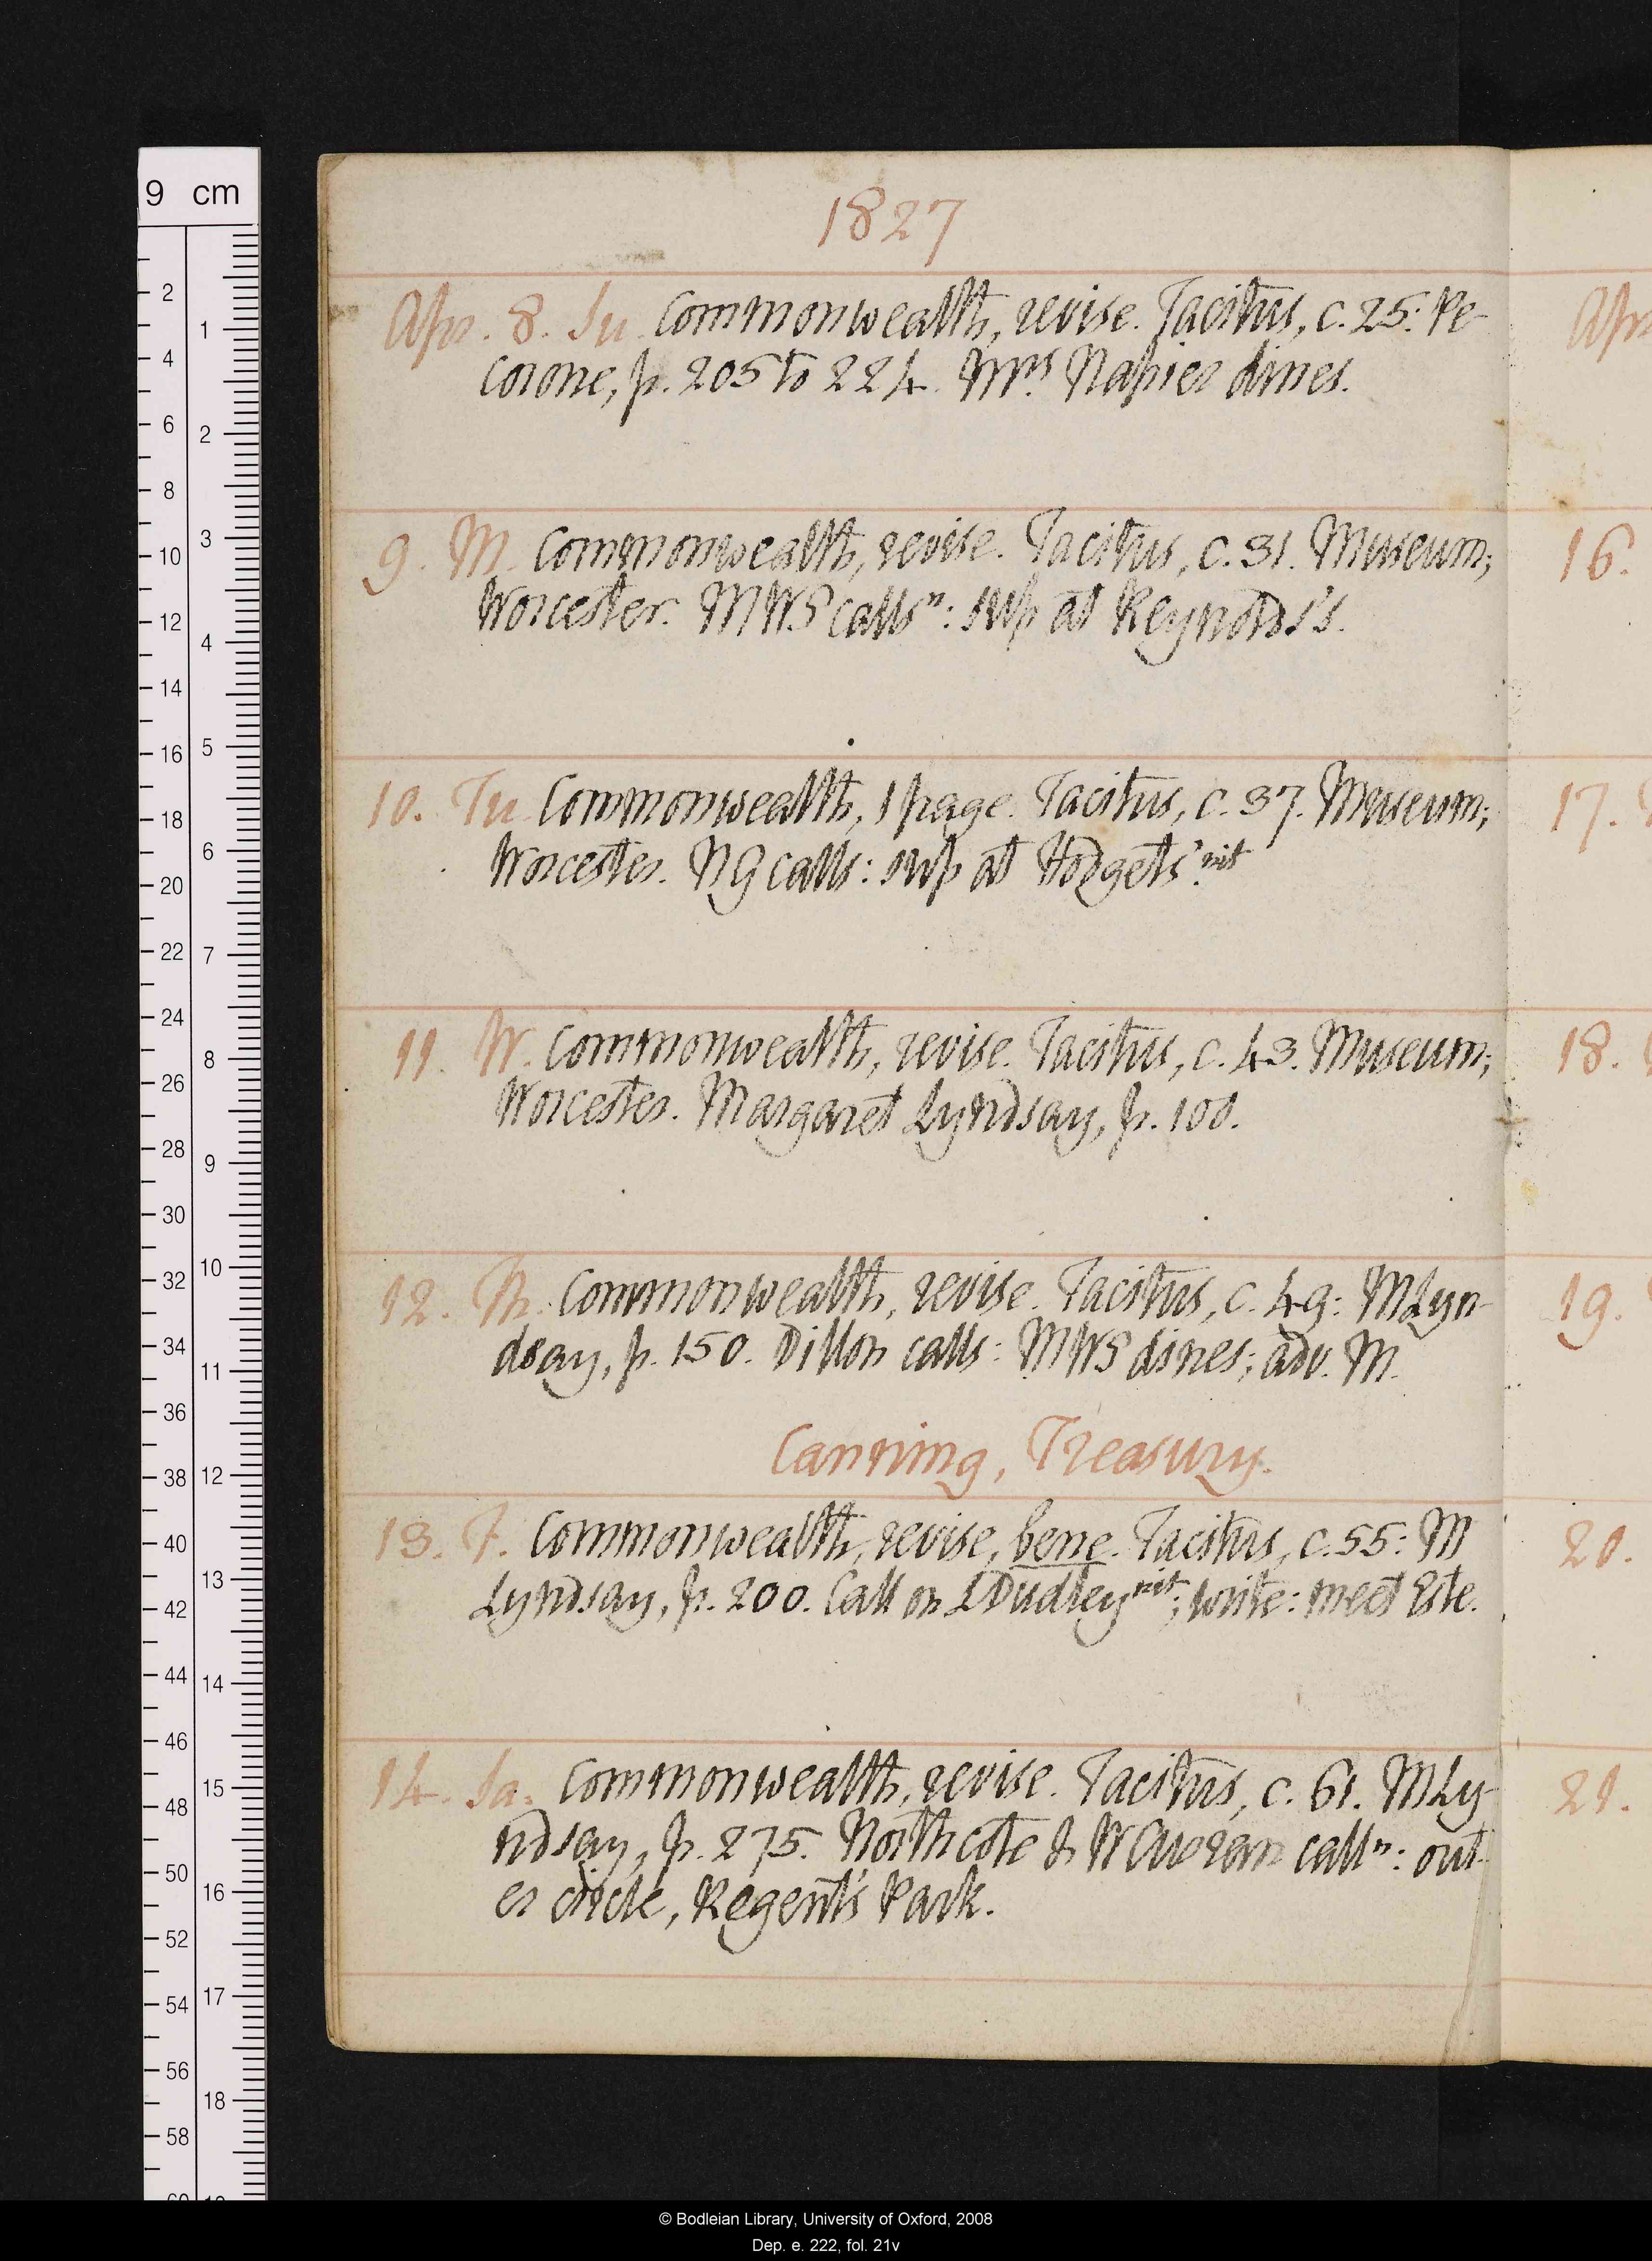 1827
Apr. 8. Su. Commonwealth, revise. Tacitus, c. 25: Pe-
corone, p. 205 to 224. Mrs Napier dines.
9. M. Commonwealth, revise. Tacitus, c. 31. Museum;
Worcester. MWS calls n: sup at Reynolds's.
10. Tu. Commonwealth, 1 page. Tacitus, c. 37. Museum;
Worcester. NG calls: sup at Hodgets' nit
11. W. Commonwealth, revise. Tacitus, c. 43. Museum;
Worcester. Margaret Lyndsay, p. 100.
12. Th. Commonwealth, revise. Tacitus, c. 49: MLyn-
dsay, p. 150. Dillon calls: MWS dines; adv. M.
Canning, Treasury.
13. F. Commonwealth, revise, bene. Tacitus, c. 55: M
Lyndsay, p. 200. Call on LDudley nit; write: meet Este.
14. Sa. Commonwealth, revise. Tacitus, c. 61. MLy-
ndsay, p. 275. Northcote & W call n: out-
er circle, Regent's Park.
Apr
16.
17.
18.
19.
20.
21.
9 cm
2
4
6
8
10
12
14
16
18
20
22
24
26
28
30
32
34
36
38
40
42
44
46
48
50
52
54
56
58
60
1
2
3
4
5
6
7
8
9
10
11
12
13
14
15
16
17
18
19
© Bodleian Library, University of Oxford, 2008
Dep. e. 222, fol. 21v